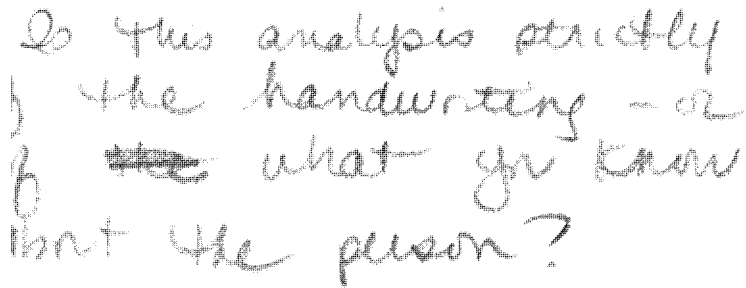 Is this analysis strictly
of the handwriting - or
of what you know
about the person?